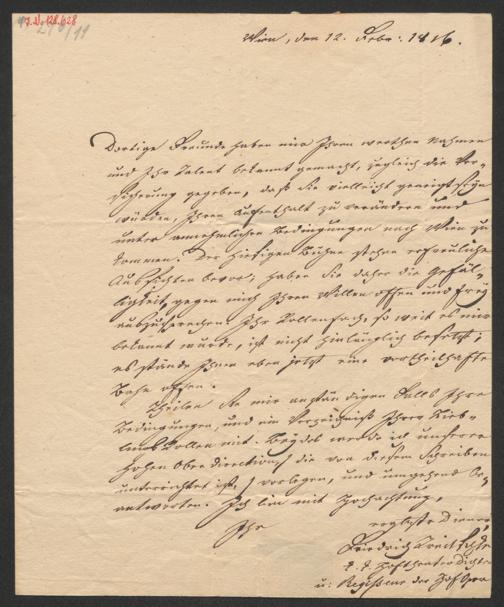 J.N. 128.628
Wien, den 12. Febr. 1816.
Dortige Freunde haben mir Ihren werthen Nahmen
und Ihr Talent bekannt gemacht, zugleich die Ver-
sicherung gegeben, daß Sie vielleicht geneigt seyn
würden, Ihren Aufenthalt zu verändern und
unter annehmlichen Bedingungen nach Wien zu
kommen. Der hiesigen Bühne stehen erfreuliche
Aussichten bevor; haben Sie daher die Gefäl-
ligkeit, gegen mich Ihren Willen offen und frey
auszusprechen. Ihr Rollenfach, so weit es mir
bekannt wurde, ist nicht hinlänglich besetzt;
es stände Ihnen eben jetzt eine vortheilhafte
Bahn offen.
Theilen Sie mir anständigen Falls Ihre
Bedingungen, und ein Verzeichniß Ihrer Lieb-
lings Rollen mit. Beydes werde ich unserer
hohen Oberdirection, die von diesem Schreiben
unterrichtet ist, vorlegen, und umgehend be-
antworten. Ich bin mit Hochachtung,
Ihr
ergebenster Diener,
Friedrich Treitschke
k. k. Hoftheater Dichter
u: Regisseur der Hofoper